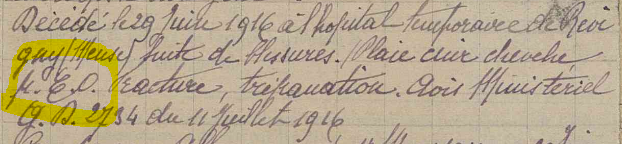 Décédé le 29 Juin 1916 à l'hopital temporaire de Revi
gny (Meuse) suite de blessures. Plaie cuir chevelu
p. E. O. Fracture, trépanation. Avis Ministériel
G. D. 2734 du 11 Juillet 1916